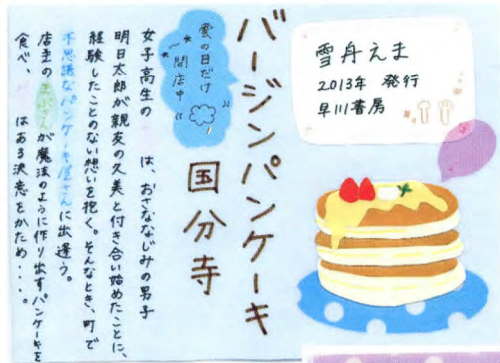 バージンパンケーキ
国分寺
雪舟えま
2013年 発行
早川書房
雲の日だけ
開店中
女子高生の は、おさななじみの男子
明日太郎が親友の久美と付き合い始めたことに、
経験したことのない想いを抱く。そんなとき、町で
不思議なパンケーキ屋さんに出逢う。
店主の まぶさんが魔法のように作り出すパンケーキを
食べ、 はある決意をかため・・・。